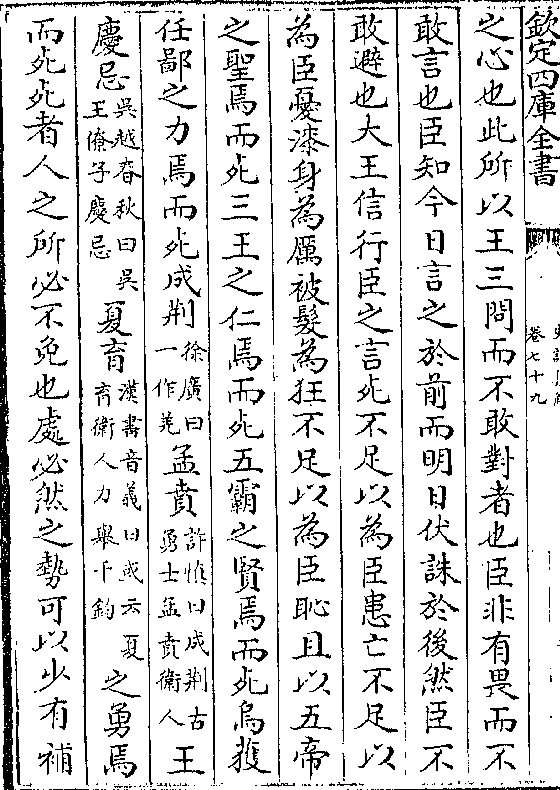 欽定四庫全書
卷七十九
之心也此所以王三問而不敢對者也臣非有畏而不
敢言也臣知今日言之於前而明日伏誅於後然臣不
敢避也大王信行臣之言死不足以為臣患亡不足以
為臣憂漆身為厲被髮為狂不足以為臣恥且以五帝
之聖焉而死三王之仁焉而死五霸之賢焉而死烏獲
任鄙之力焉而死成荆徐廣曰一作羌孟賁許慎曰成荆古勇士孟賁衛人王
慶忌吳越春秋曰吳王僚子慶忌夏育漢書音義曰或云夏育衛人力舉千鈞之勇焉
而死死者人之所必不免也處必然之勢可以少有補